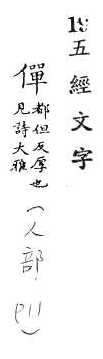 五經文字
僤
都但反厚也
見詩大雅
(人部, P11)